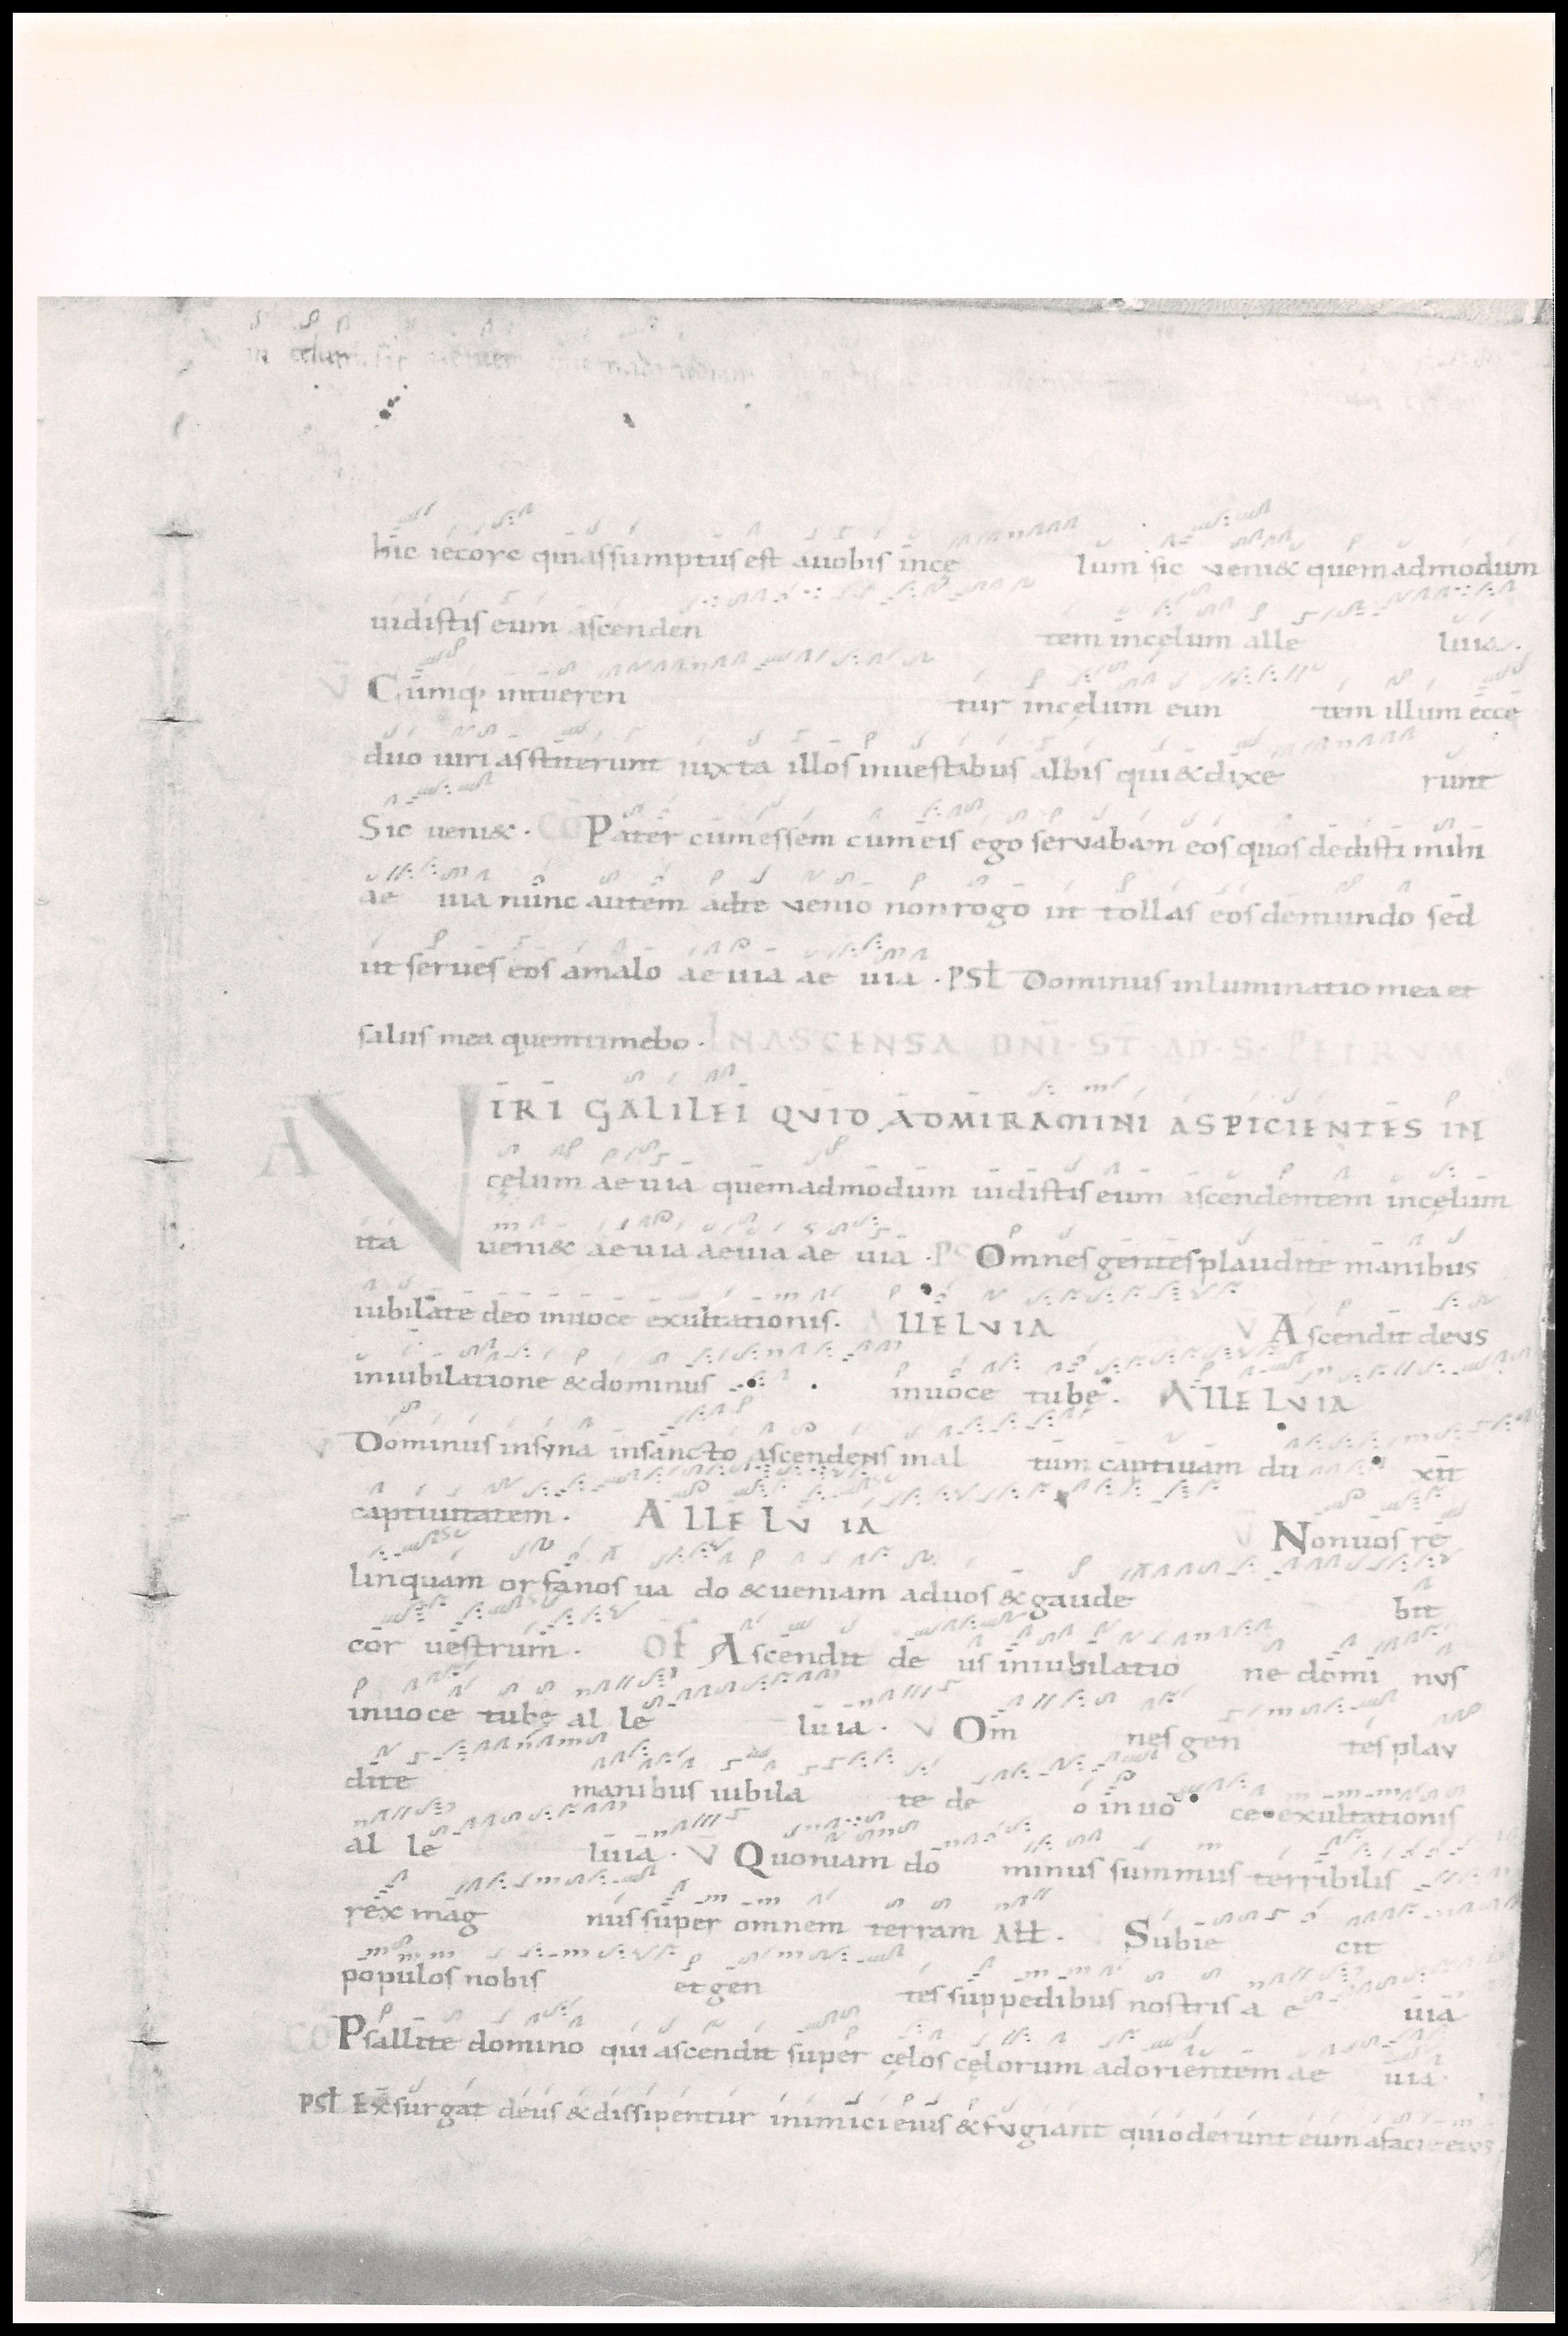 in celum. sic
hic iecore quiassumptus est auobis ince lum sic veni& quemadmodum
uidistis eum ascenden tem incęlum alle luia.
V Cumq; intueren tur incęlum eun tem illum ecce
duo uiri asstiterunt iuxta illos inuestabus albis qui&dixe runt
Sic ueni&. CO Pater cumessem cumeis ego servabam eos quos dedisti mihi
ae uia nunc autem adte venio nonrogo ut tollas eos demundo sed
ut serues eos amalo aeuia ae uia. PSL Dominus inluminatio mea et
salus mea quemtimebo. INASCENSA DNI. ST. AD. S. PETRVM
A VIRI GALILEI QVID ADMIRAMINI ASPICIENTES IN
cęlum aeuia quemadmodum uidistis eum ascendentem incęlum
ita ueni& aeuia aeuia ae uia. PS Omnes gentes plaudite manibus
iubilate deo inuoce exultationis. ALLELVIA V Ascendit deus
iniubilatione &dominus inuoce tube. ALLELVIA
V Dominus insyna insancto ascendens inal tum captiuam du xit
captiuitatem. ALLELVIA V Nonuos re
linquam orfanos ua do &ueniam aduos &gaude bit
cor uestrum. OF Ascendit de us iniubilatio ne domi nus
inuoce tubę al le luia. V Om nes gen tes plau
dite manibus iubila te de o inuo ce exultationis
al le luia. V Quoniam do minus summus terribilis
rex mag nus super omnem terram All. Subie cit
populos nobis et gen tes suppedibus nostris a e uia
CO Psallite domino qui ascendit super cęlos cęlorum adorientem ae uia.
PSL Exsurgat deus &dissipentur inimici eius &fugiant quioderunt eum afacie eius.